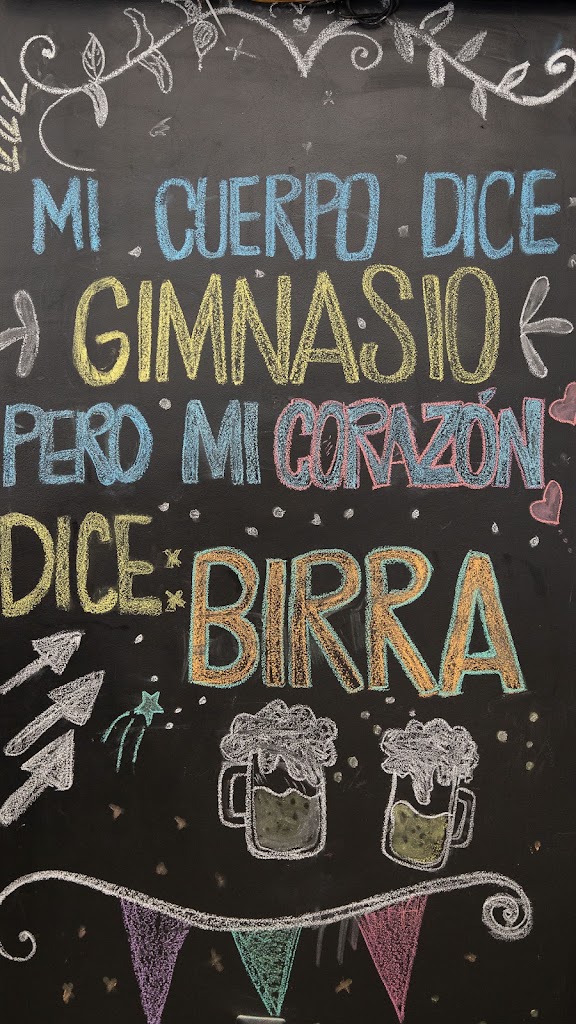 MI CUERPO DICE
GIMNASIO
PERO MI CORAZÓN
DICE:
BIRRA